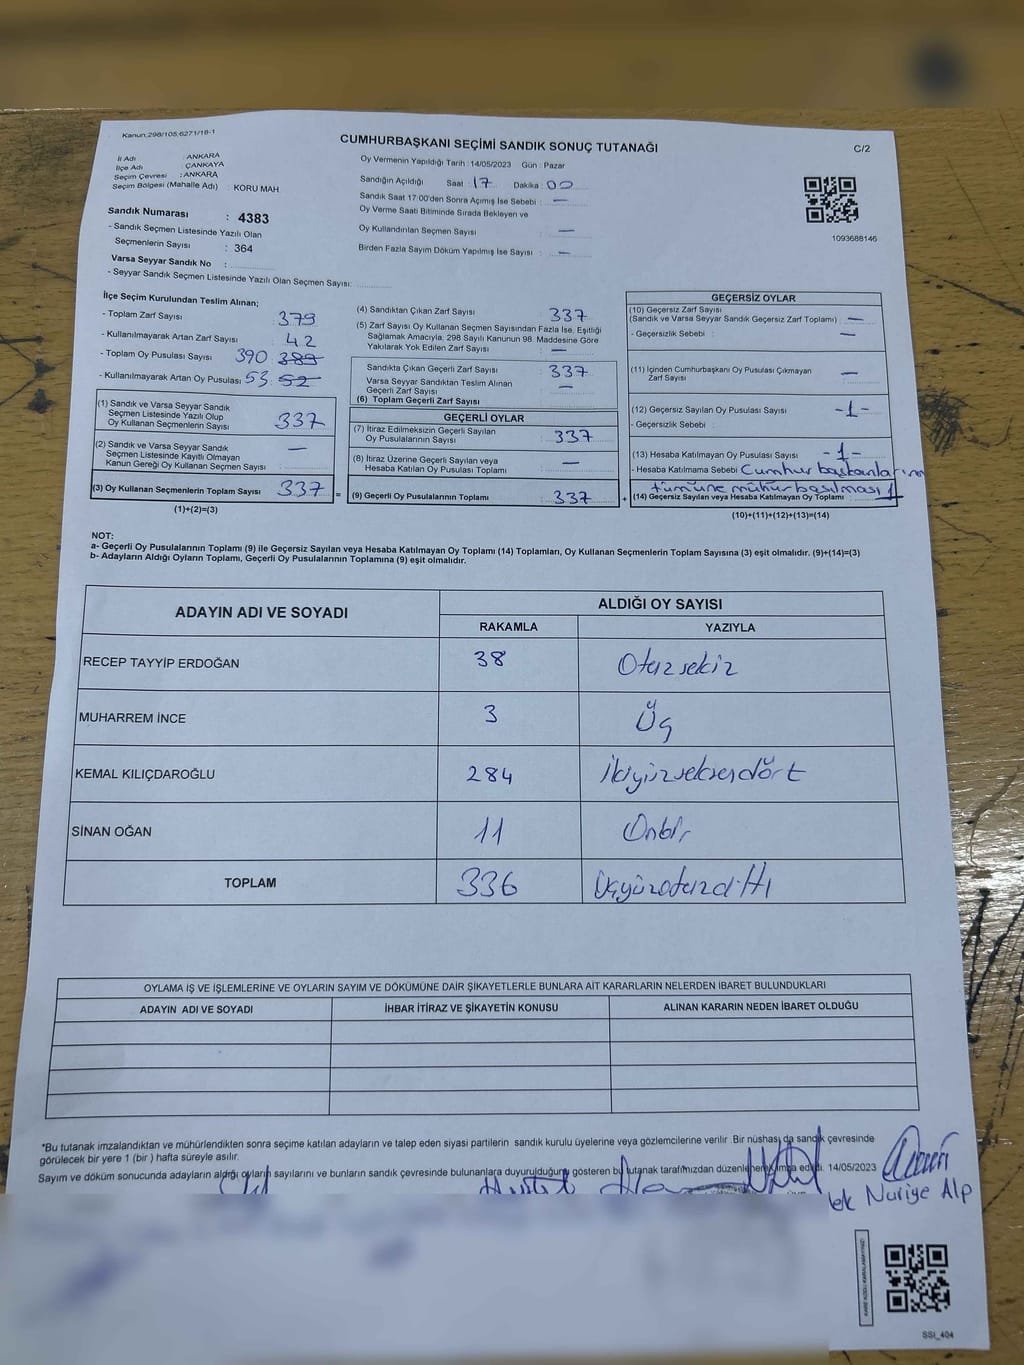 Kanun;298/105;6271/18-1
CUMHURBAŞKANI SEÇİMİ SANDIK SONUÇ TUTANAĞI
C/2
İl Adı : ANKARA
İlçe Adı : ÇANKAYA
Seçim Çevresi : ANKARA
Seçim Bölgesi (Mahalle Adı) : KORU MAH
Oy Vermenin Yapıldığı Tarih : 14/05/2023 Gün : Pazar
Sandığın Açıldığı Saat : 17 Dakika : 00
Sandık Saat 17:00'den Sonra Açımış İse Sebebi : —
Oy Verme Saati Bitiminde Sırada Bekleyen ve
Oy Kullandırılan Seçmen Sayısı : —
Birden Fazla Sayım Döküm Yapılmış İse Sayısı : —
1093688146
Sandık Numarası : 4383
- Sandık Seçmen Listesinde Yazılı Olan
Seçmenlerin Sayısı : 364
Varsa Seyyar Sandık No :
- Seyyar Sandık Seçmen Listesinde Yazılı Olan Seçmen Sayısı:
İlçe Seçim Kurulundan Teslim Alınan;
- Toplam Zarf Sayısı 379
- Kullanılmayarak Artan Zarf Sayısı : 42
- Toplam Oy Pusulası Sayısı 390 389
- Kullanılmayarak Artan Oy Pusulası 53 52
(1) Sandık ve Varsa Seyyar Sandık
Seçmen Listesinde Yazılı Olup
Oy Kullanan Seçmenlerin Sayısı : 337
(2) Sandık ve Varsa Seyyar Sandık
Seçmen Listesinde Kayıtlı Olmayan
Kanun Gereği Oy Kullanan Seçmen Sayısı : —
(3) Oy Kullanan Seçmenlerin Toplam Sayısı : 337 =
(1)+(2)=(3)
(4) Sandıktan Çıkan Zarf Sayısı : 337
(5) Zarf Sayısı Oy Kullanan Seçmen Sayısından Fazla İse, Eşitliği
Sağlamak Amacıyla, 298 Sayılı Kanunun 98. Maddesine Göre
Yakılarak Yok Edilen Zarf Sayısı : —
Sandıkta Çıkan Geçerli Zarf Sayısı : 337
Varsa Seyyar Sandıktan Teslim Alınan
Geçerli Zarf Sayısı : —
(6) Toplam Geçerli Zarf Sayısı
GEÇERLİ OYLAR
(7) İtiraz Edilmeksizin Geçerli Sayılan
Oy Pusulalarının Sayısı : 337
(8) İtiraz Üzerine Geçerli Sayılan veya
Hesaba Katılan Oy Pusulası Toplamı : —
(9) Geçerli Oy Pusulalarının Toplamı : 337 +
GEÇERSİZ OYLAR
(10) Geçersiz Zarf Sayısı
(Sandık ve Varsa Seyyar Sandık Geçersiz Zarf Toplamı) : —
- Geçersizlik Sebebi : —
(11) İçinden Cumhurbaşkanı Oy Pusulası Çıkmayan
Zarf Sayısı : —
(12) Geçersiz Sayılan Oy Pusulası Sayısı : -1-
- Geçersizlik Sebebi :
(13) Hesaba Katılmayan Oy Pusulası Sayısı : -1-
- Hesaba Katılmama Sebebi Cumhurbaşkanlarının
tümüne mühür basılması
(14) Geçersiz Sayılan veya Hesaba Katılmayan Oy Toplamı : 1
(10)+(11)+(12)+(13)=(14)
NOT:
a- Geçerli Oy Pusulalarının Toplamı (9) ile Geçersiz Sayılan veya Hesaba Katılmayan Oy Toplamı (14) Toplamları, Oy Kullanan Seçmenlerin Toplam Sayısına (3) eşit olmalıdır. (9)+(14)=(3)
b- Adayların Aldığı Oyların Toplamı, Geçerli Oy Pusulalarının Toplamına (9) eşit olmalıdır.
ADAYIN ADI VE SOYADI ALDIĞI OY SAYISI
RAKAMLA YAZIYLA
RECEP TAYYİP ERDOĞAN 38 Otuzsekiz
MUHARREM İNCE 3 Üç
KEMAL KILIÇDAROĞLU 284 İkiyüzseksendört
SİNAN OĞAN 11 Onbir
TOPLAM 336 Üçyüzotuzaltı
OYLAMA İŞ VE İŞLEMLERİNE VE OYLARIN SAYIM VE DÖKÜMÜNE DAİR ŞİKAYETLERLE BUNLARA AİT KARARLARIN NELERDEN İBARET BULUNDUKLARI
ADAYIN ADI VE SOYADI İHBAR İTİRAZ VE ŞİKAYETİN KONUSU ALINAN KARARIN NEDEN İBARET OLDUĞU
*Bu tutanak imzalandıktan ve mühürlendikten sonra seçime katılan adayların ve talep eden siyasi partilerin sandık kurulu üyelerine veya gözlemcilerine verilir. Bir nüshası da sandık çevresinde
görülecek bir yere 1 (bir) hafta süreyle asılır.
Sayım ve döküm sonucunda adayların aldığı oyların sayılarını ve bunların sandık çevresinde bulunanlara duyurulduğunu gösteren bu tutanak tarafımızdan düzenlenerek imza edildi. 14/05/2023
Nuriye Alp
KARE KODU KARALAMAYINIZ!
SSI_404